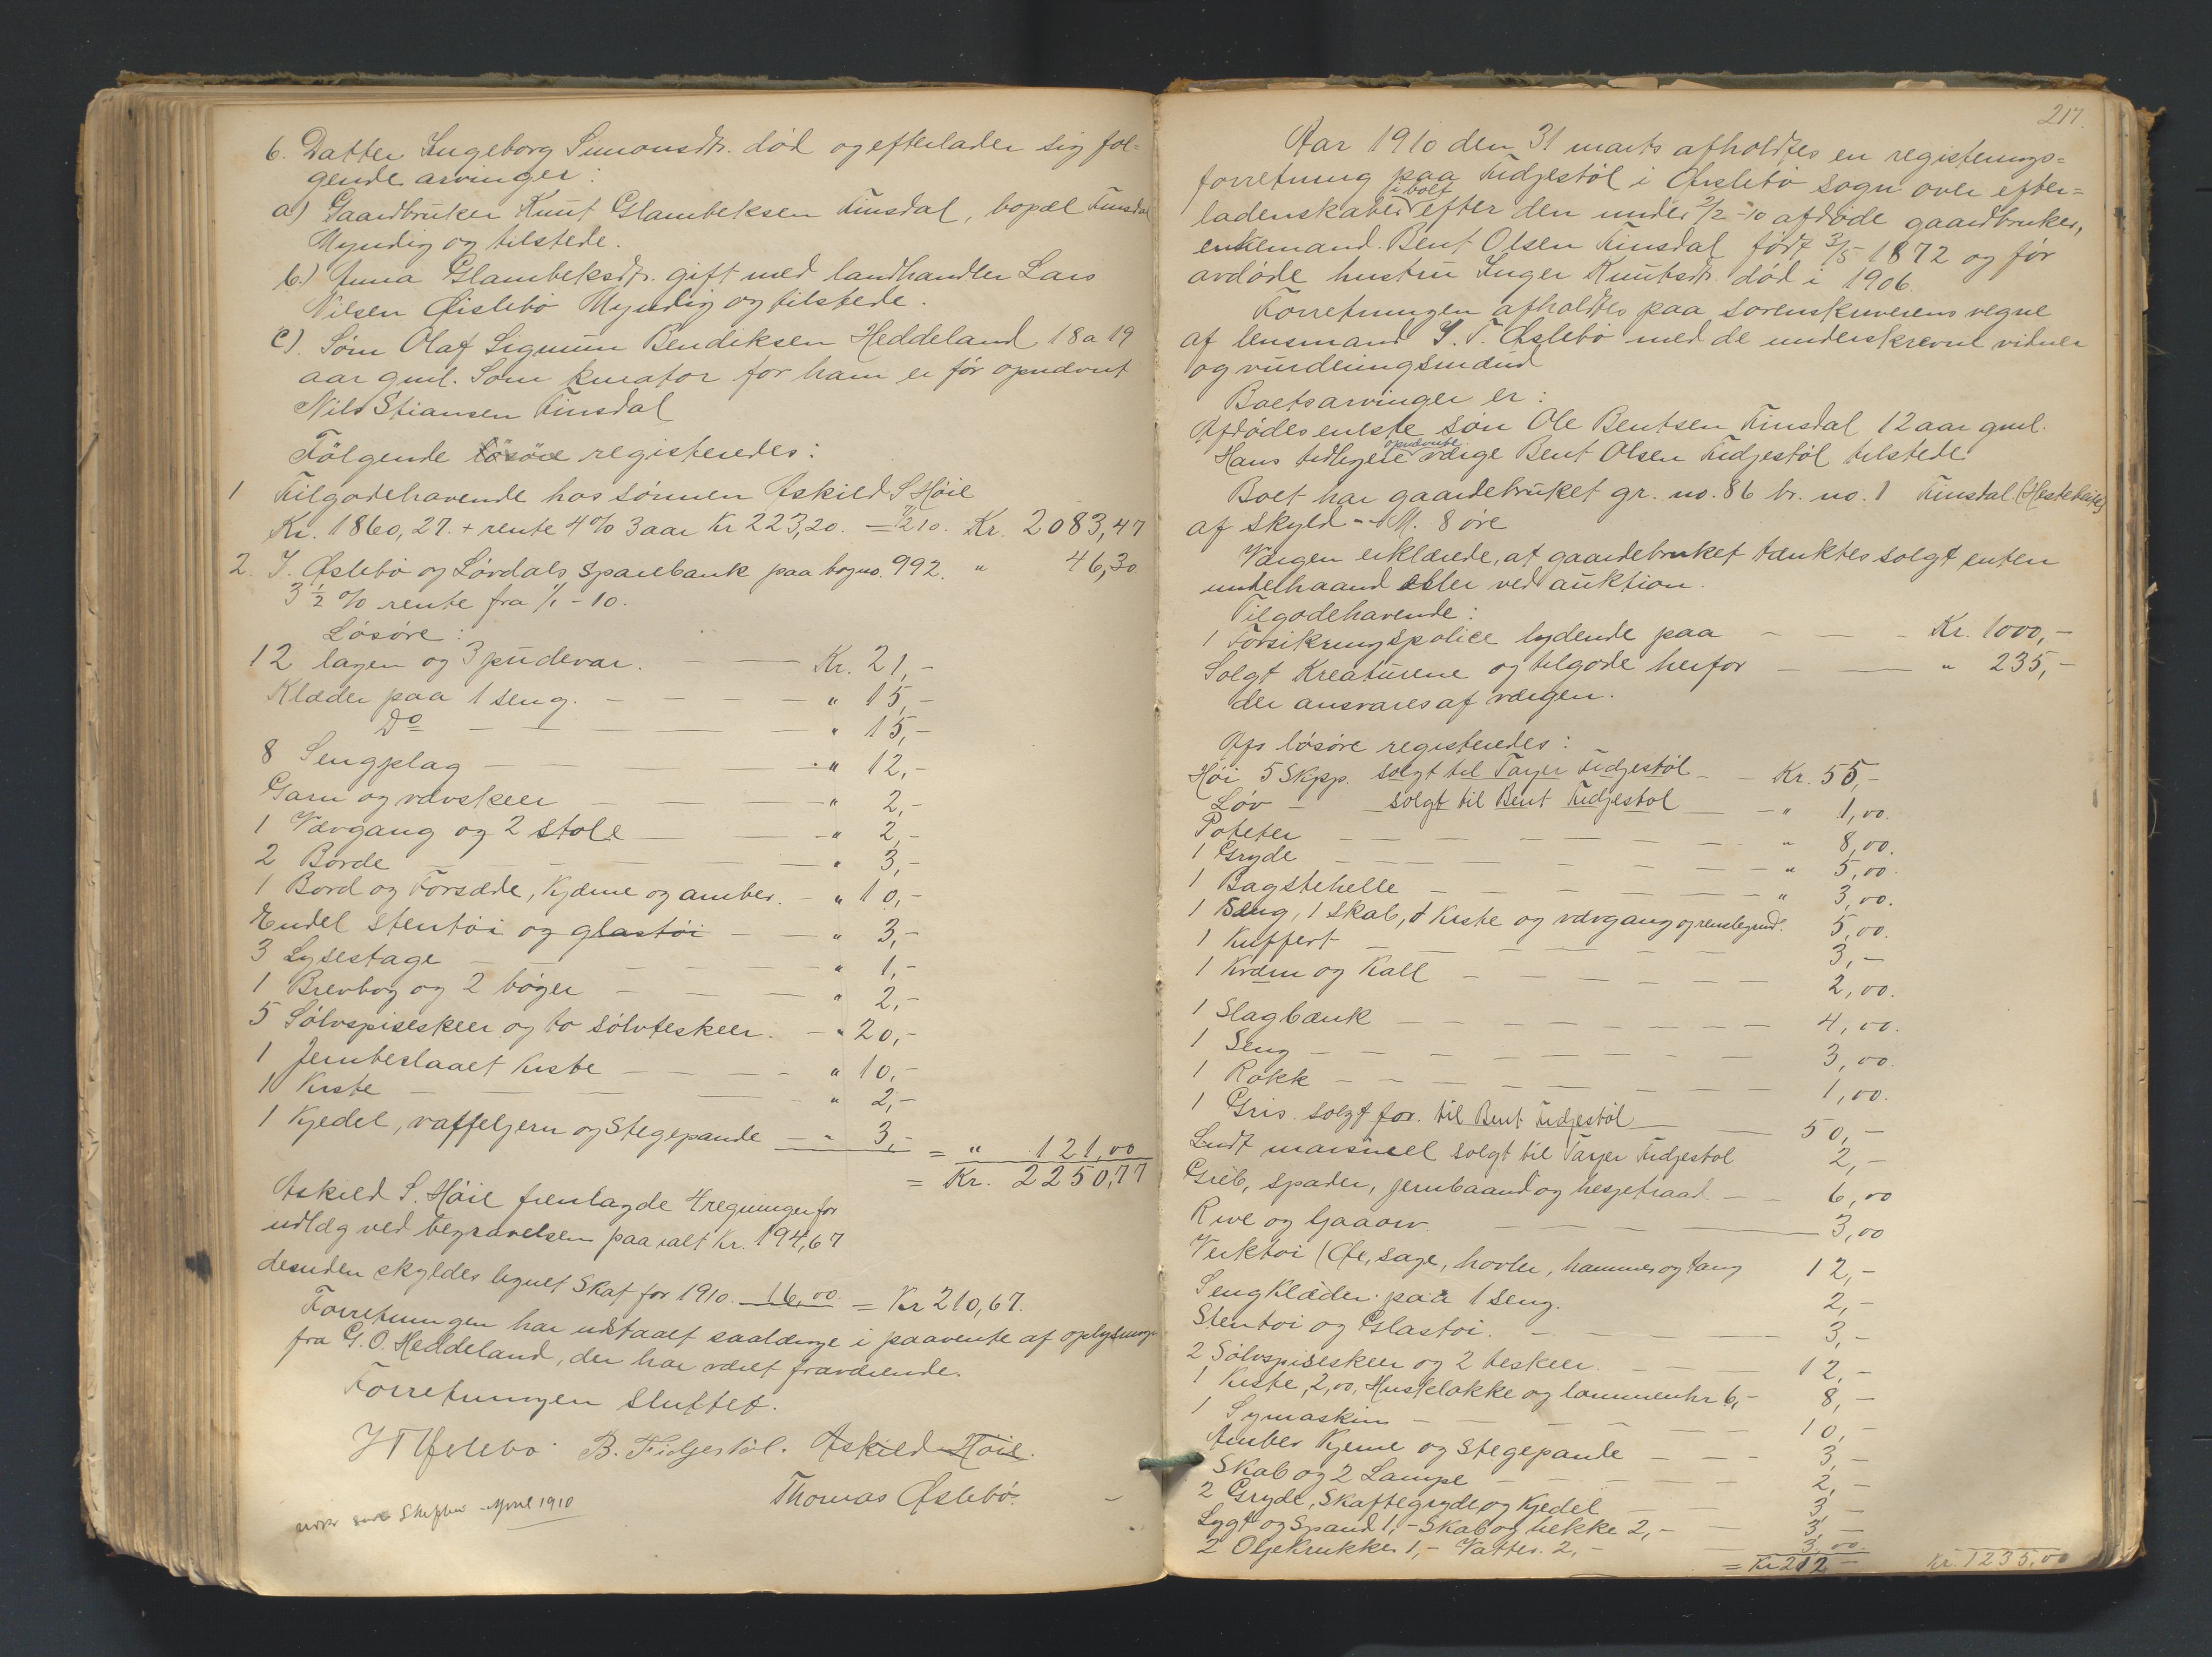 6. Datter Ingeborg Simonsdtr. død og efterlader sig føl-
gende arvinger:
a) Gaardbruker Knut Glambeksen Finsdal, bopæl Finsdal
Myndig og tilstede.
b.) Anna Glambeksdtr. gift med landhandler Lars
Nilsen Øislebø Myndig og tilstede.
c). Søn Olaf Sigmun Bendiksen Heddeland 18 a 19
aar gml. Som kurator for ham er før opnævnt
Nils Stiansen Finsdal
Følgende løsøre registeredes:
1 Tilgodehavende hos sønnen Askild S Høie
Kr. 1860,27. + rente 4% 3 aar Kr 223,20. = Kr. 2083,47
2. I. Øslebø og Løvdals sparebank paa bog no. 992. " 46,30
3 1/2 % rente fra 1/1 - 10.
Løsøre:
12 lagen og 3 pudevar. — Kr. 21,-
Klæder paa 1 seng. — " 15,-
Do — " 15,-
8 Sengplag — " 12,-
Garn og vævskeer — " 2,-
1 Vævgang og 2 stole — " 2,-
2 Borde — " 3,-
1 Bord og Forsæde, Kjærne og amber. — " 10,-
Endel stentøi og glastøi — " 3,-
3 Lysestage — " 1,-
1 Brevbog og 2 bøger — " 2,-
5 Sølvspiseskeer og to sølvteskeer. — " 20,-
1 Jernbeslaaet kiste — " 10,-
1 Kiste — " 2,-
1 Kjedel, vaffeljern og Stegepande — " 3,- = " 121,00
= Kr. 2250,77
Askild S. Høie fremlagde 4 regninger for
udlæg ved begravelsen paa ialt Kr. 194,67
desuden skyldes lignet Skat for 1910. 16,00 = Kr 210,67.
Forretningen har udstaaet saalænge i paavente af oplysninger
fra G. O. Heddeland, der har været fraværende.
Forretningen sluttet.
J T Øslebø B. Fidjestøl. Askild Høie.
Thomas Øslebø.
April 1910
217.
Aar 1910 den 31 marts afholdtes en registerings-
forretning paa Fidjestøl i Øislebø sogn over efter-
ladenskaber i boet efter den under 2/2 -10 afdøde gaardbruker,
enkemand Bent Olsen Finsdal født 3/5 1872 og før
avdøde hustru Inger Knutsdtr. død i 1906.
Forretningen afholdtes paa sorenskriverens vegne
af lensmand J. T. Øslebø med de underskrevne vidner
og vurderingsmænd
Boets arvinger er:
Afdødes eneste søn Ole Bentsen Finsdal 12 aar gml.
Hans tidligere opnævnte værge Bent Olsen Fidjestøl tilstede.
Boet har gaardebruket gr. no. 86 br. no. 1 Finsdal
af skyld - M. 8 øre
Værgen erklærede, at gaardebruket tænktes solgt enten
underhaand eller ved auktion.
Tilgodehavende:
1 Forsikringspolice lydende paa — Kr. 1000,-
Solgt Kreaturene og tilgode herfor — " 235,-
der ansvares af værgen.
Afs løsøre registeredes:
Høi 5 Skpp. solgt til Tarjer Fidjestøl — Kr. 55,-
Løv — solgt til Bent Fidjestøl — " 1,00.
Poteter — " 8,00.
1 Gryde — " 5,00.
1 Bagstehelle — " 3,00.
1 Seng, 1 skab, 1 kiste og vævgang og 5,00.
1 Kuffert — 3,-
1 Kværn og Kall — 2,00.
1 Slagbænk — 4,00.
1 Seng — 3,00.
1 Rokk — 1,00.
1 Gris. solgt for. til Bent Fidjestøl — 50,-
Lidt solgt til Tarjer Fidjestøl 2,-
Greb, spader, jernbaand og hesjetraad — 6,00
Rive og ljaaorv. — 3,00
Verktøi (Øx, sage, hovler, hammer og tang 12,-
Sengklæder paa 1 seng. 2,-
Stentøi og Glastøi. — 3,-
2 Sølvspiseskeer og 2 teskeer. — 12,-
1 Kiste, 2,00, Husklokke og lommeuhr 6,- 8,-
1 Symaskin — 10,-
Amber Kjerne og Stegepande — 3,-
Skab og 2 Lampe — 2,-
2 Gryde, Skaftegryde og Kjedel — 3 -
Lygt og Spand 1,- Skab og hekke 2,- — 3, -
2 Oljekrukker 1,- Vatter. 2,- 3,00.
= Kr 212 - Kr. 1235,00